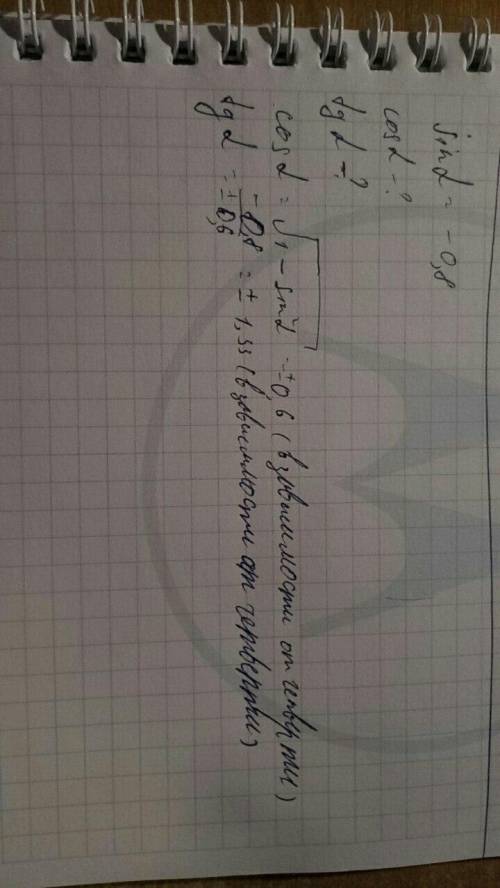 sin α = - 0,8
cos α - ?
tg α - ?
cos α = √1 - sin²α = ± 0,6 (в зависимости от четверти)
tg α = - 0,8 / ± 0,6 = ± 1,33 (в зависимости от четверти)